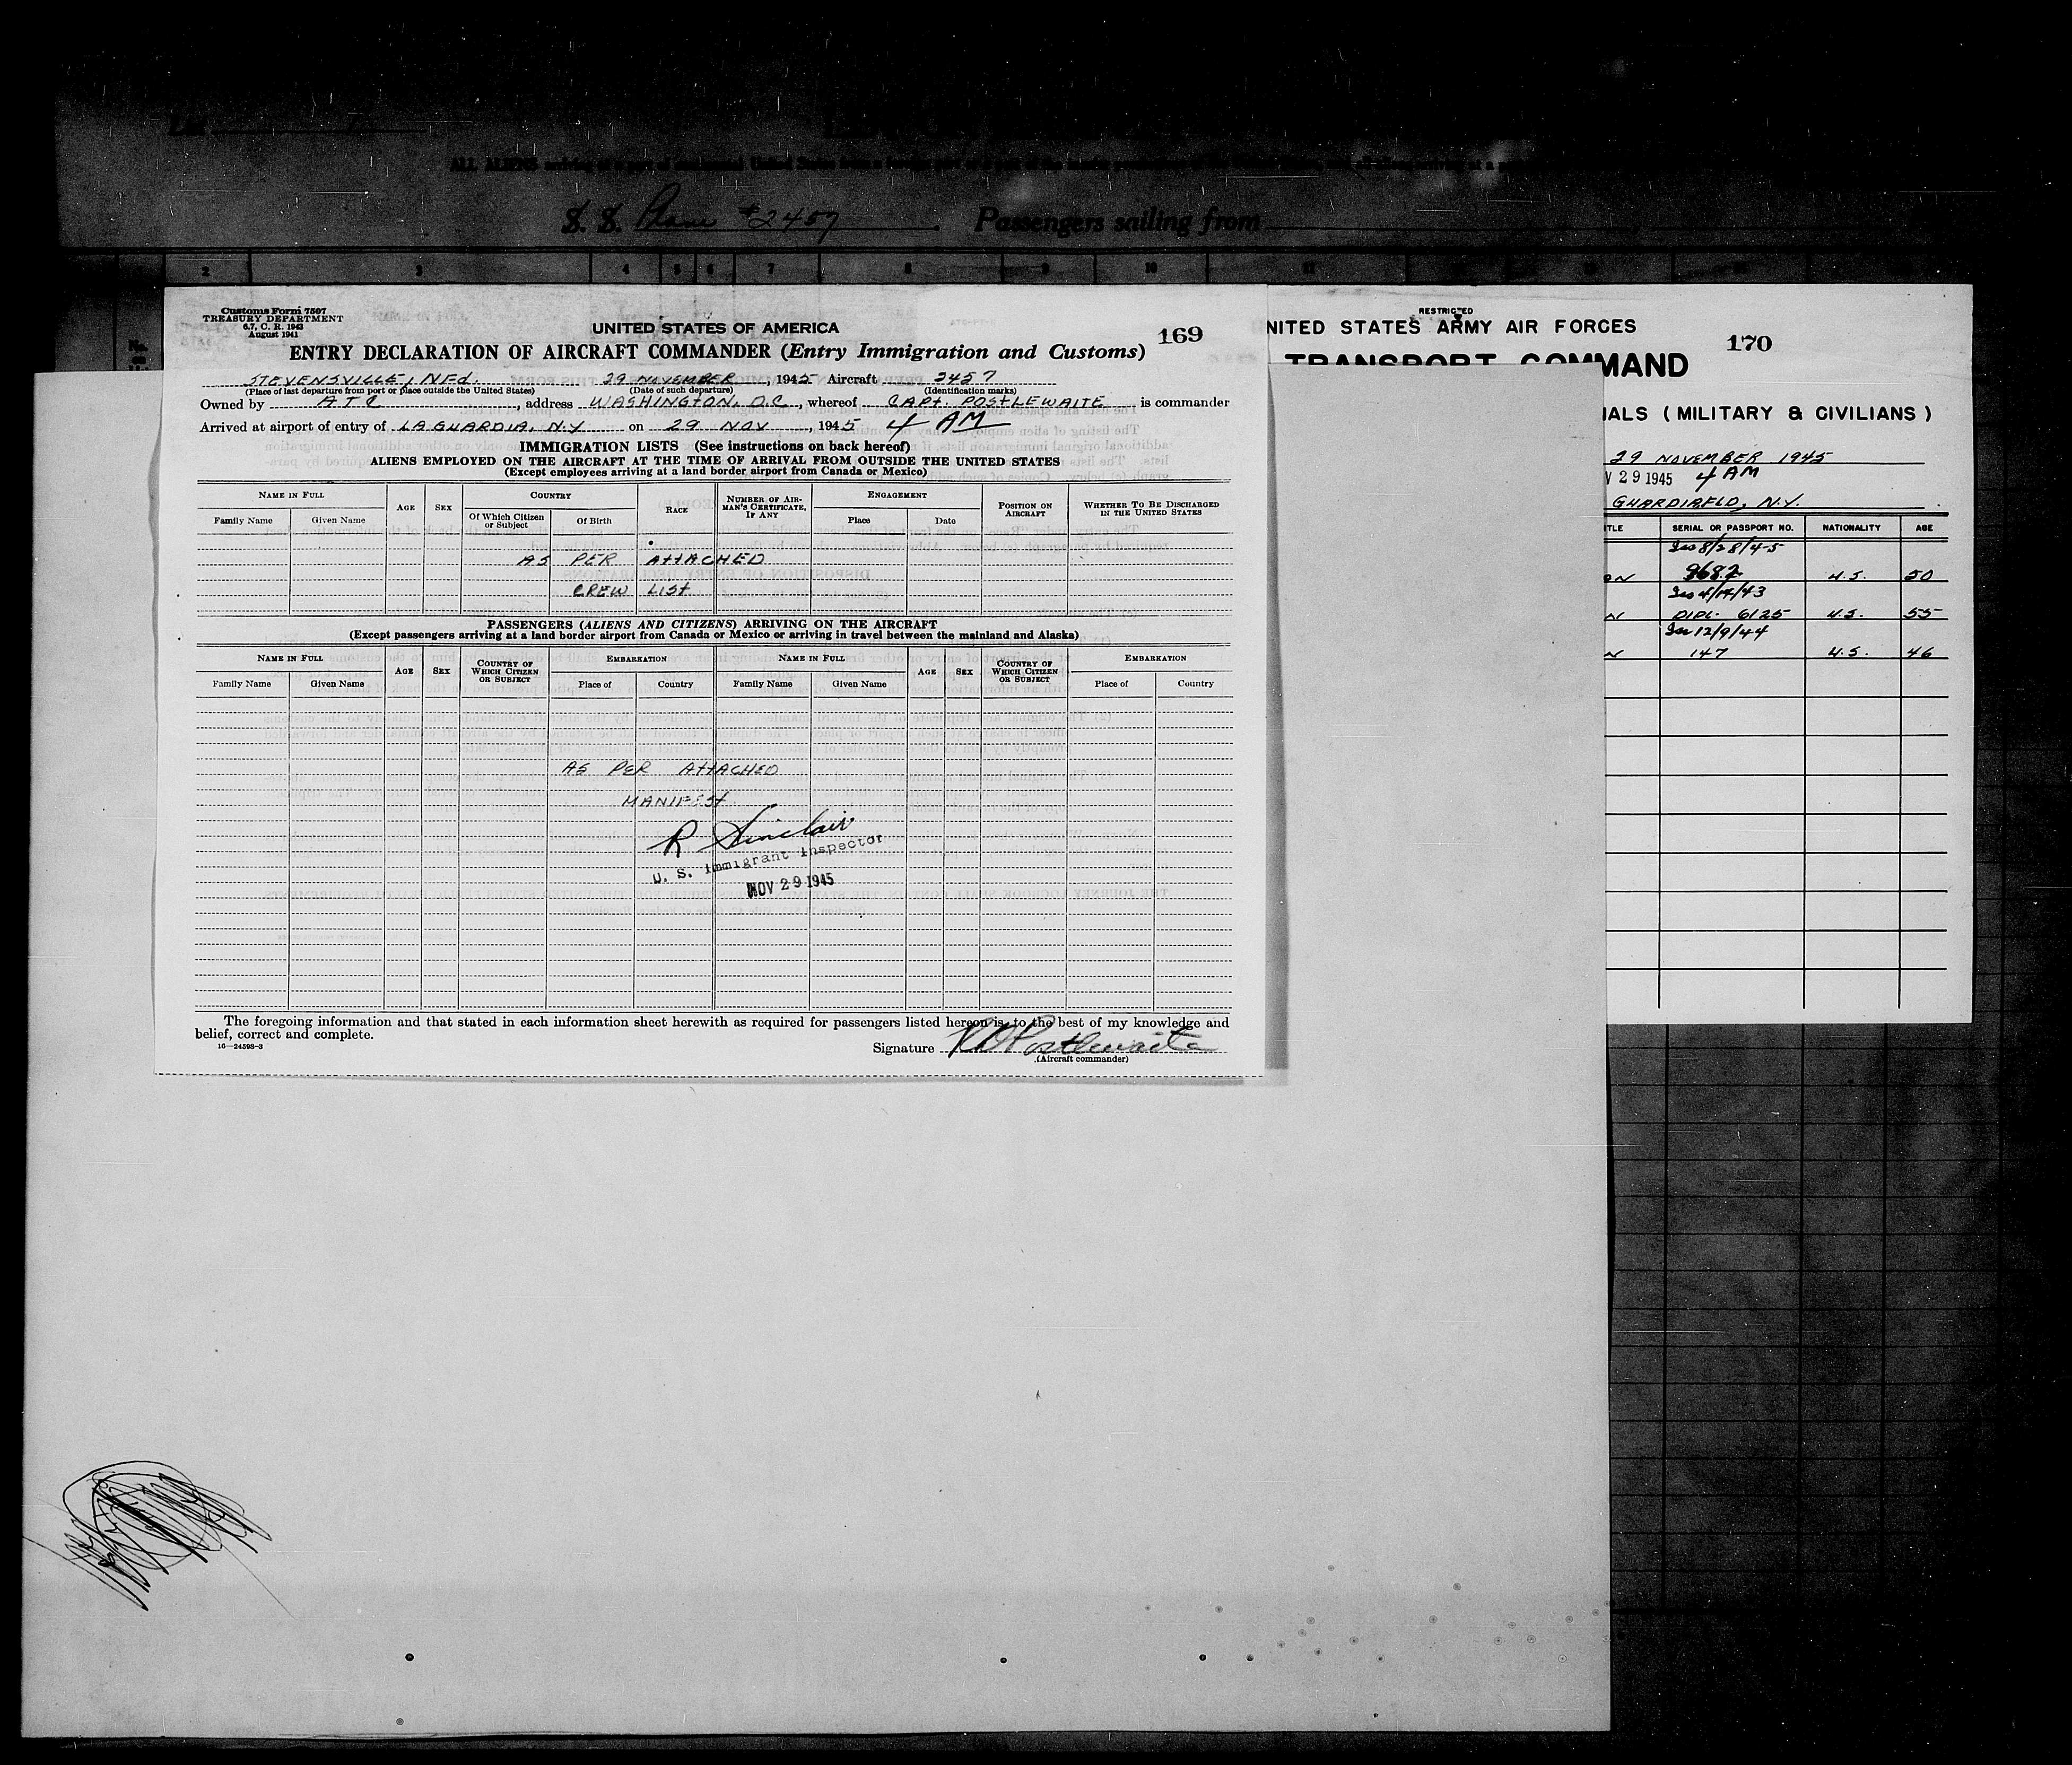 ALL ALIENS arriving at a port of continental United States from a foreign port or a port of the insular possessions of the United States
S. S. Plane #2457 Passengers sailing from
2 3 4 5 6 7 8 9 10 11
No.
Customs Form 7507
TREASURY DEPARTMENT
6.7, C. R. 1943
August 1941
UNITED STATES OF AMERICA
169
ENTRY DECLARATION OF AIRCRAFT COMMANDER (Entry Immigration and Customs)
STEVENSVILLE, NFd. 29 NOVEMBER, 1945 Aircraft 2457
(Place of last departure from port or place outside the United States) (Date of such departure) (Identification marks)
Owned by ATC, address WASHINGTON, D.C., whereof CAPT. POSTLEWAITE is commander
Arrived at airport of entry of LA GUARDIA, N.Y on 29 NOV, 1945 4 AM
IMMIGRATION LISTS (See instructions on back hereof)
ALIENS EMPLOYED ON THE AIRCRAFT AT THE TIME OF ARRIVAL FROM OUTSIDE THE UNITED STATES
(Except employees arriving at a land border airport from Canada or Mexico)
NAME IN FULL AGE SEX COUNTRY RACE NUMBER OF AIRMAN'S CERTIFICATE, IF ANY ENGAGEMENT POSITION ON AIRCRAFT WHETHER TO BE DISCHARGED IN THE UNITED STATES
Family Name Given Name Of Which Citizen or Subject Of Birth Place Date
AS PER ATTACHED
CREW LIST
PASSENGERS (ALIENS AND CITIZENS) ARRIVING ON THE AIRCRAFT
(Except passengers arriving at a land border airport from Canada or Mexico or arriving in travel between the mainland and Alaska)
NAME IN FULL AGE SEX COUNTRY OF WHICH CITIZEN OR SUBJECT EMBARKATION NAME IN FULL AGE SEX COUNTRY OF WHICH CITIZEN OR SUBJECT EMBARKATION
Family Name Given Name Place of Country Family Name Given Name Place of Country
AS PER ATTACHED
MANIFEST
R Sinclair
U. S. Immigrant Inspector
NOV 29 1945
The foregoing information and that stated in each information sheet herewith as required for passengers listed hereon is, to the best of my knowledge and
belief, correct and complete.
16—24598-3
Signature R D Postlewaite
(Aircraft commander)
RESTRICTED
NITED STATES ARMY AIR FORCES
170
TRANSPORT COMMAND
IALS (MILITARY & CIVILIANS)
29 NOVEMBER 1945
V 29 1945 4 AM
GUARDIAFLD, N.Y.
TLE SERIAL OR PASSPORT NO. NATIONALITY AGE
Iss 8/28/45
9682 U.S. 50
Iss 4/14/43
DIPL. 6125 U.S. 55
Iss 12/9/44
147 U.S. 46